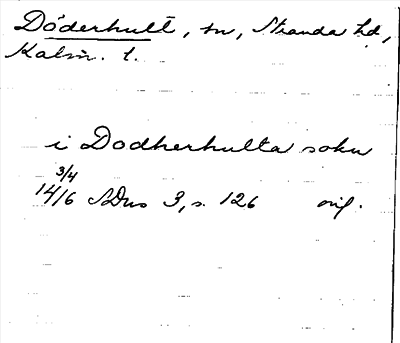 Döderhult, sn, Stranda hd,
Kalm. l.
i Dodherhulta sokn
3/4
1416 SDns 3, s. 126 orig.